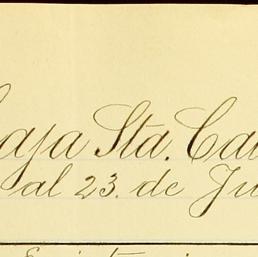 Caja Sta. Ca
al 23. de Ju